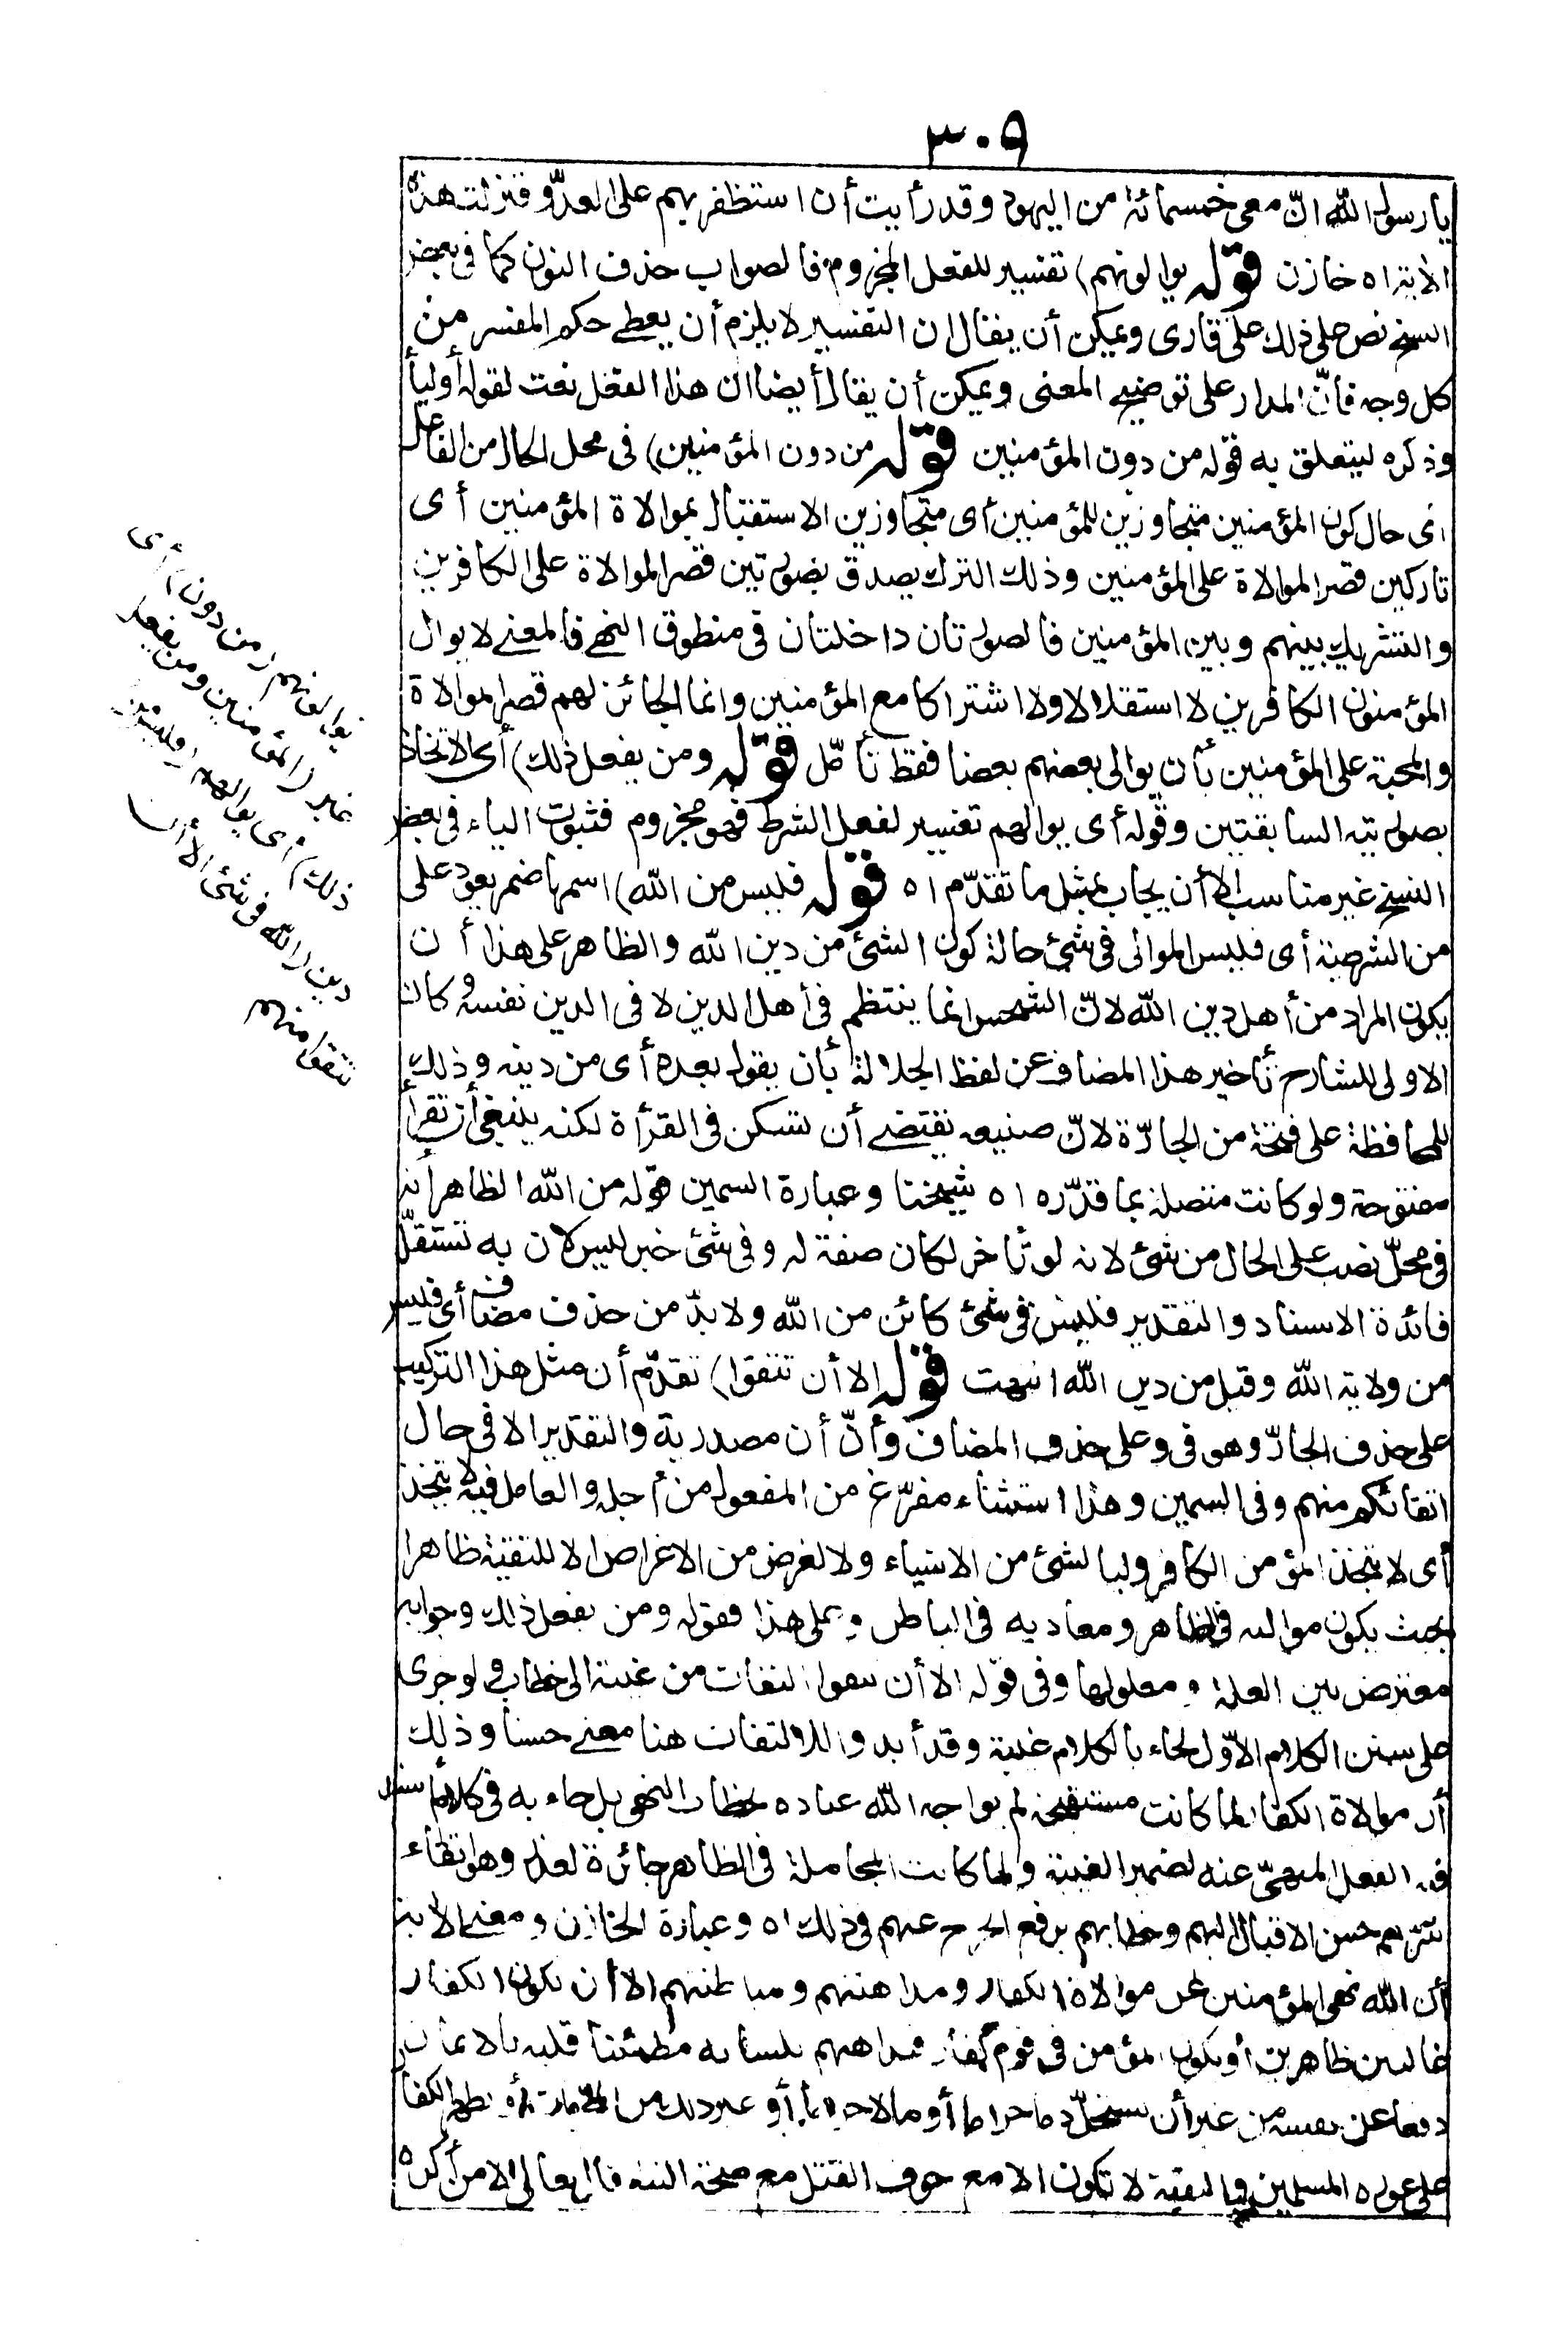 ٣٠٩
يا رسول الله انّ معى خمسمائة من اليهود وقد رأيت أن استظفر بهم على العدّو فنزلت هذه
الآية اه خازن قوله يوالونهم) تفسير للفعل المجزوم فالصواب حذف النون كما فى بعض
النسخ نص على ذلك على قارى ويمكن أن يقال ان التفسير لا يلزم أن يعطى حكم المفسر من
كل وجه فانّ المدار على توضيح المعنى ويمكن أن يقال أيضا ان هذا الفعل نعت لقوله أوليأ
وذكره ليتعلق به قوله من دون المؤمنين قوله من دون المؤمنين) فى محل الحال من الفاعل
اى حال كون المؤمنين متجاوزين للمؤمنين أى متجاوزين الاستقبال بموالاة المؤمنين أى
تاركين قصر الموالاة على المؤمنين وذلك الترك يصدق بصورتين قصر الموالاة على الكافرين
والتشريك بينهم وبين المؤمنين فالصورتان داخلتان فى منطوق النهى فالمعنى لا يوال
المؤمنون الكافرين لا استقلالا ولا اشتراكا مع المؤمنين وانما الجائز لهم قصر الموالاة
والمحبة على المؤمنين بأن يوالى بعضهم بعضا فقط تأمّل قوله ومن يفعل ذلك) أى الاتخاذ
بصورتيه السابقتين وقوله أى يوالهم تفسير لفعل الشرط فهو مجزوم فثبوت الياء فى بعض
النسخ غير مناسب الا أن يجاب بمثل ما تقدّم اه قوله فليس من الله) اسمها ضمير يعود على
من الشرطية أى فليس الموالى فى شئ حالة كون الشئ من دين الله والظاهر على هذا أن
يكون المراد من أهل دين الله لانّ الشخص انما ينتظم فى أهل الدين لا فى الدين نفسه وكان
الاولى للشارح تأخير هذا المضاف عن لفظ الجلالة بأن يقول بعده أى من دينه وذلك
للمحافظة على فتحة من الجارّة لانّ صنيعه يقتضى أن تسكن فى القرأة لكنه ينبغى أن تقرأ
مفتوحة ولو كانت متصلة بما قدّره اه شيخنا وعبارة السمين قوله من الله الظاهر أنه
فى محلّ نصب على الحال من شئ لانه لو تأخر لكان صفة له وفى شئ خبر ليس لان به تستقلّ
فائدة الاسناد والتقدير فليس فى شئ كائن من الله ولا بدّ من حذف مضاف أى فليس
من ولاية الله وقيل من دين الله انتهت قوله الا أن تتقوا) تقدّم أن مثل هذا التركيب
على حذف الجارّ وهو فى وعلى حذف المضاف وأنّ أن مصدرية والتقدير الا فى حال
اتقائكم منهم وفى السمين وهذا استثناء مفرّغ من المفعول من أجله والعامل فيه لا يتخذ
أى لا يتخذ المؤمن الكافر وليا لشئ من الاشياء ولا لغرض من الاغراض الا للتقية ظاهرا
بحيث يكون مواليه فى الظاهر ومعاديه فى الباطن وعلى هذا فقوله ومن يفعل ذلك وجوابه
معترض بين العلة ومعلولها وفى قوله الا أن تتقوا التفات من غيبة الى خطاب ولو جرى
على سنن الكلام الاوّل لجاء بالكلام غيبة وقد أبدوا للالتفات هنا معنى حسنا وذلك
أن موالاة الكفار لما كانت مستقبحة لم يواجه الله عباده بخطاب النهى بل جاء به فى كلام أسند
فيه الفعل المنهىّ عنه لضمير الغيبة ولما كانت المجاملة فى الظاهر جائزة لعذر وهو اتقاء
شرّهم حسن الاقبال اليهم وخطابهم برفع الحرج عنهم فى ذلك اه وعبارة الخازن ومعنى الآية
أن الله نهى المؤمنين عن موالاة الكفار ومداهنتهم ومباطنتهم الا أن يكون الكفار
غالبين ظاهرين أو يكون المؤمن فى قوم كفار فيداهنهم بلسانه مطمئنا قلبه بالايمان
دفعا عن نفسه من غير أن يستحلّ دما حراما أو مالا حراما أو غير ذلك من المحرّمات أو يظهر الكفار
على عورة المسلمين والتقية لا تكون الا مع خوف القتل مع صحة النية قال تعالى الا من أكره
يوالونهم (من دون) أى
غير (المؤمنين ومن يفعل
ذلك) أى يوالهم (فليس من)
دين (الله فى شئ الا أن
تتقوا منهم